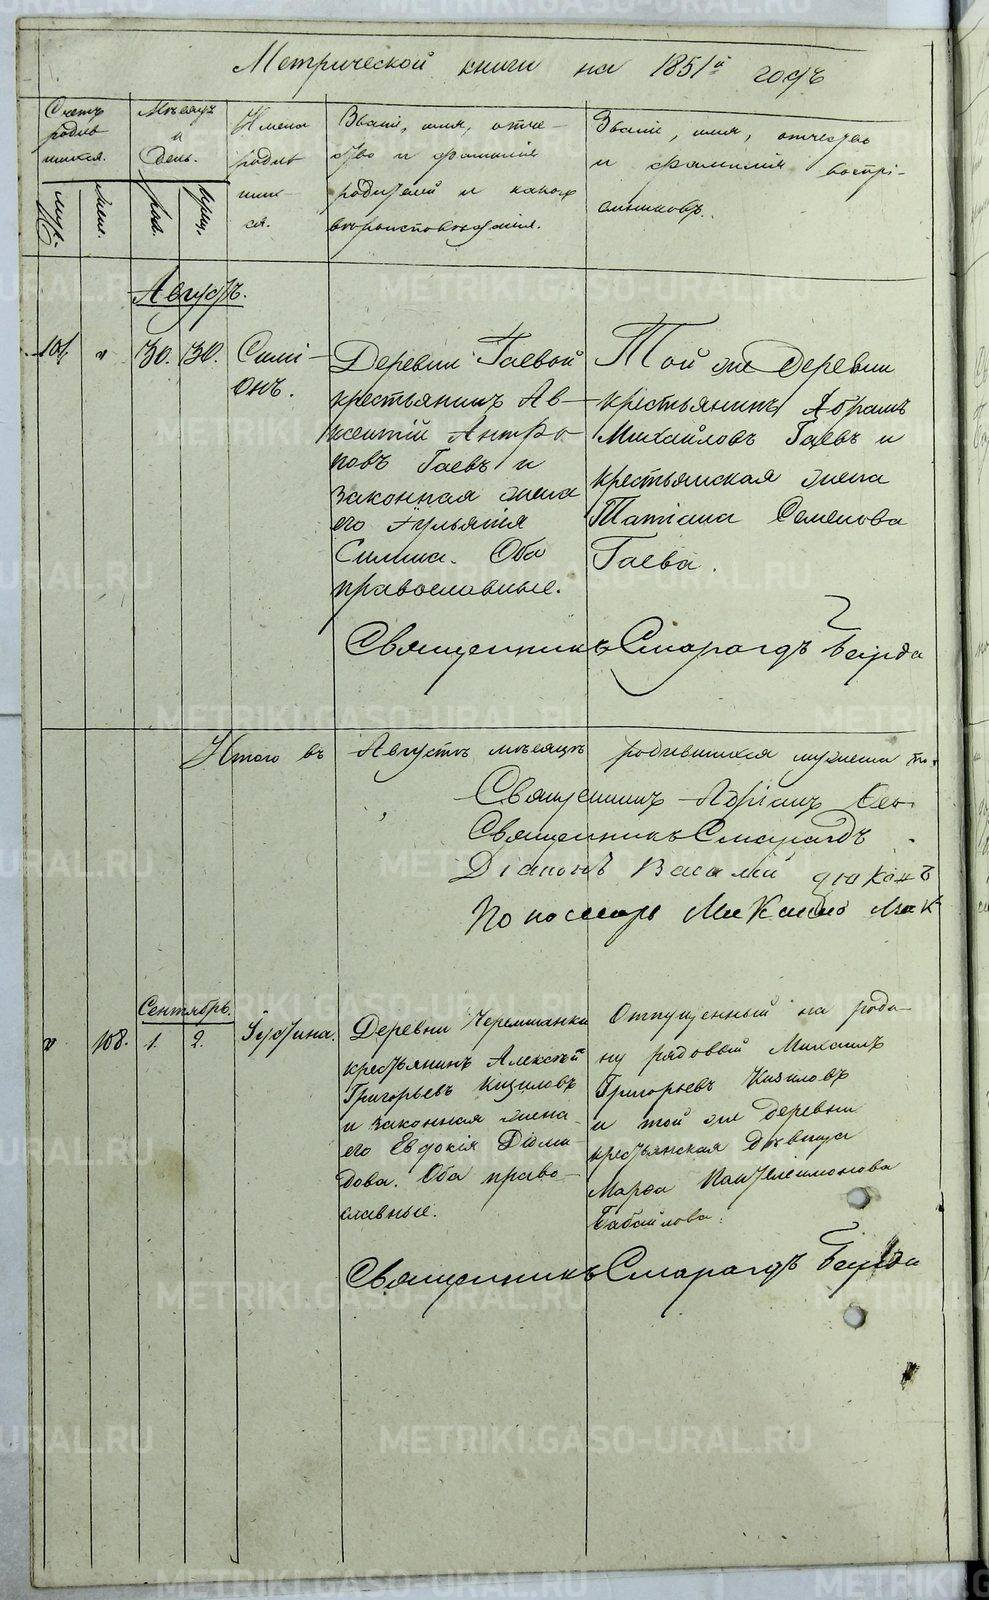 Метрической книги на 1851й годъ
Счетъ родив шихся.
муж.
жен.
Мѣсяцъ и День.
рожд.
крещ.
Имена родив ших ся.
Званіе, имя, отче-
ство и фамилія
родителей и какого
вѣроисповѣданія.
Званіе, имя, отчество
и фамилія воспрі-
емниковъ.
Августъ.
30. 30.
Симі-
онъ.
Деревни Гаевой
крестьянинъ Ав-
ксентій Антро-
повъ Гаевъ и
законная жена
его Іульянія
Оба
православные.
Той же деревни
крестьянинъ Абрамъ
Михайловъ Гаевъ и
крестьянская жена
Татіана Семенова
Гаева.
Священникъ Смарагдъ Бирда
Итого въ Августѣ мѣсяцѣ родившихся мужеска
Священникъ Адріанъ
Священникъ Смарагдъ
Діаконъ Василій
Пономарь
Сентябрь.
108. 1. 2. Іустина.
Деревни Черемшанки
крестьянинъ Алексѣй
Григорьевъ Кизиловъ
и законная жена
его Евдокія Діоми-
дова. Оба право-
славные.
Отпущенный на роди-
ну рядовый Михаилъ
Григорьевъ Кизиловъ
и той же деревни
крестьянская дѣвица
Марѳа Пантелеимонова
Бабайлова.
Священникъ Смарагдъ Бирда
METRIKI.GASO-URAL.RU